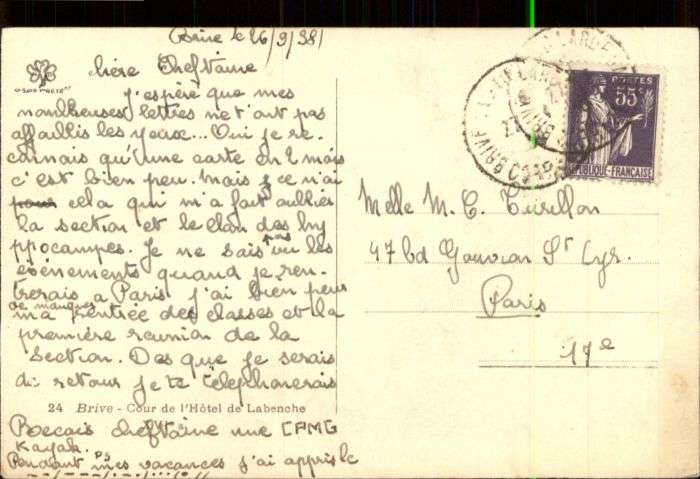 Brive le 26/9/38
chère Cheftaine
j'espère que mes
nombreuses lettres ne t'ont pas
affaiblis les yeux... Oui je re-
connais qu'une carte en 2 mois
c'est bien peu. Mais ce n'ai
pas cela qui m'a fait oublier
la section et le clan des hy
ppocampes. Je ne sais vu les
évènements quand je ren-
trerais a Paris j'ai bien peur
de manquer
ma rentrée des classes et la
première reunion de la
section. Des que je serais
de retour je te telephonerais
24 Brive - Cour de l'Hôtel de Labenche
Recois cheftaine une CPMG
Kayak.
PS
Pendant mes vacances j'ai appris le
POSTES
55c
REPUBLIQUE-FRANÇAISE
Melle M. C. Turillon
47 bd Gouvion St Cyr.
Paris
17e